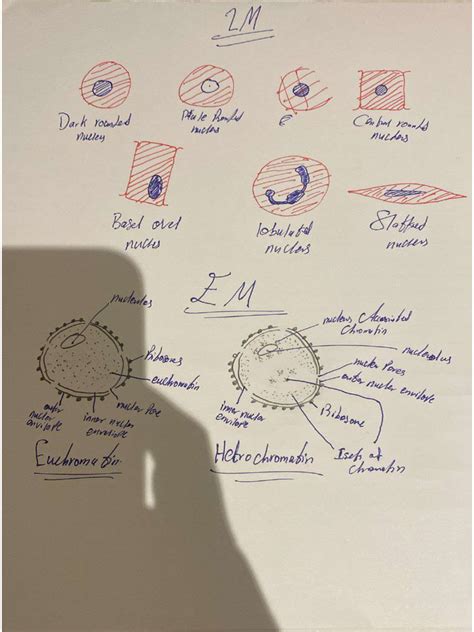 LM
Dark rounded
nucleus
Pale Rounded
nucleus
E
Central rounded
nucleus
Basel ovel
nucleus
lobulated
nucleus
nucleus
EM
nucleolus
Ribosomes
euchromatin
nuclear Pore
inner nuclear
envelope
outer
nuclear
envilope
Euchromatin
nucleus Associated
Chromatin
nucleolus
nuclear Pores
outer nuclear envilope
Ribosome
inner nuclear
envilope
chromatin
Hetrochromatin